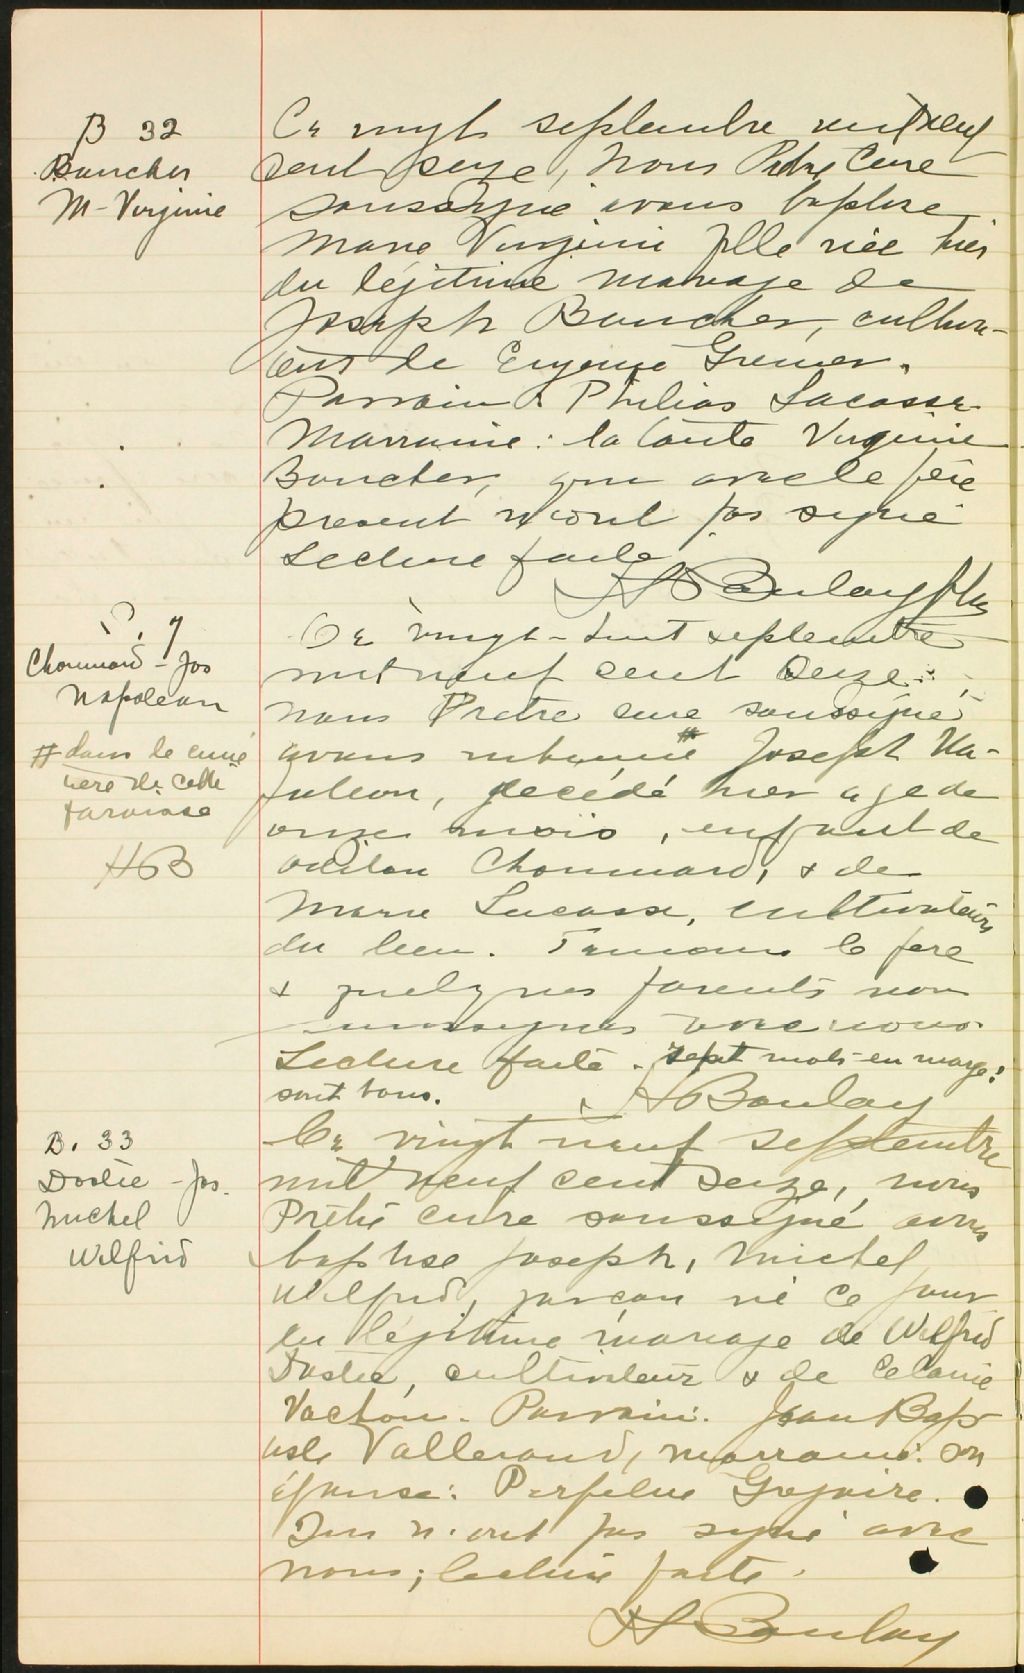 B 32
Boucher
M-Virginie
Ce vingt septembre mil neuf
cent seize, nous Prêtre Curé
soussigné avons baptisé
Marie Virginie fille née hier
du légitime mariage de
Joseph Boucher, cultiva-
teur de Eugénie Grenier.
Parrain: Philias Lacasse
Marraine: la tante Virginie
Boucher, qui avec le père
présent n'ont pas signé
Lecture faite.
H Boulay ptre
S. 7
Chouinard - Jos
Napoléon
# dans le cime
tière de cette
paroisse
HB
Ce vingt-huit septembre
mil neuf cent seize,
nous Prêtre curé soussigné
avons inhumé # Joseph Na-
poléon, décédé hier age de
onze mois, enfant de
Odilon Chouinard, & de
Marie Lacasse, cultivateurs
du lieu. Témoins le père
& quelques parents non
soussignés avec nous.
Lecture faite. Sept mots en marge
sont bons.
H Boulay
B. 33
Dostie - Jos.
Michel
Wilfrid
Ce vingt neuf septembre
mil neuf cent seize, nous
Prêtre curé soussigné avons
baptisé Joseph, Michel
Wilfrid, garçon né ce jour
du légitime mariage de Wilfrid
Dostie, cultivateur & de
Vachon. Parrain. Jean Bap
tiste Vallerand, marraine: son
épouse: Grégoire.
Qui n'ont pas signé avec
nous; lecture faite.
H Boulay